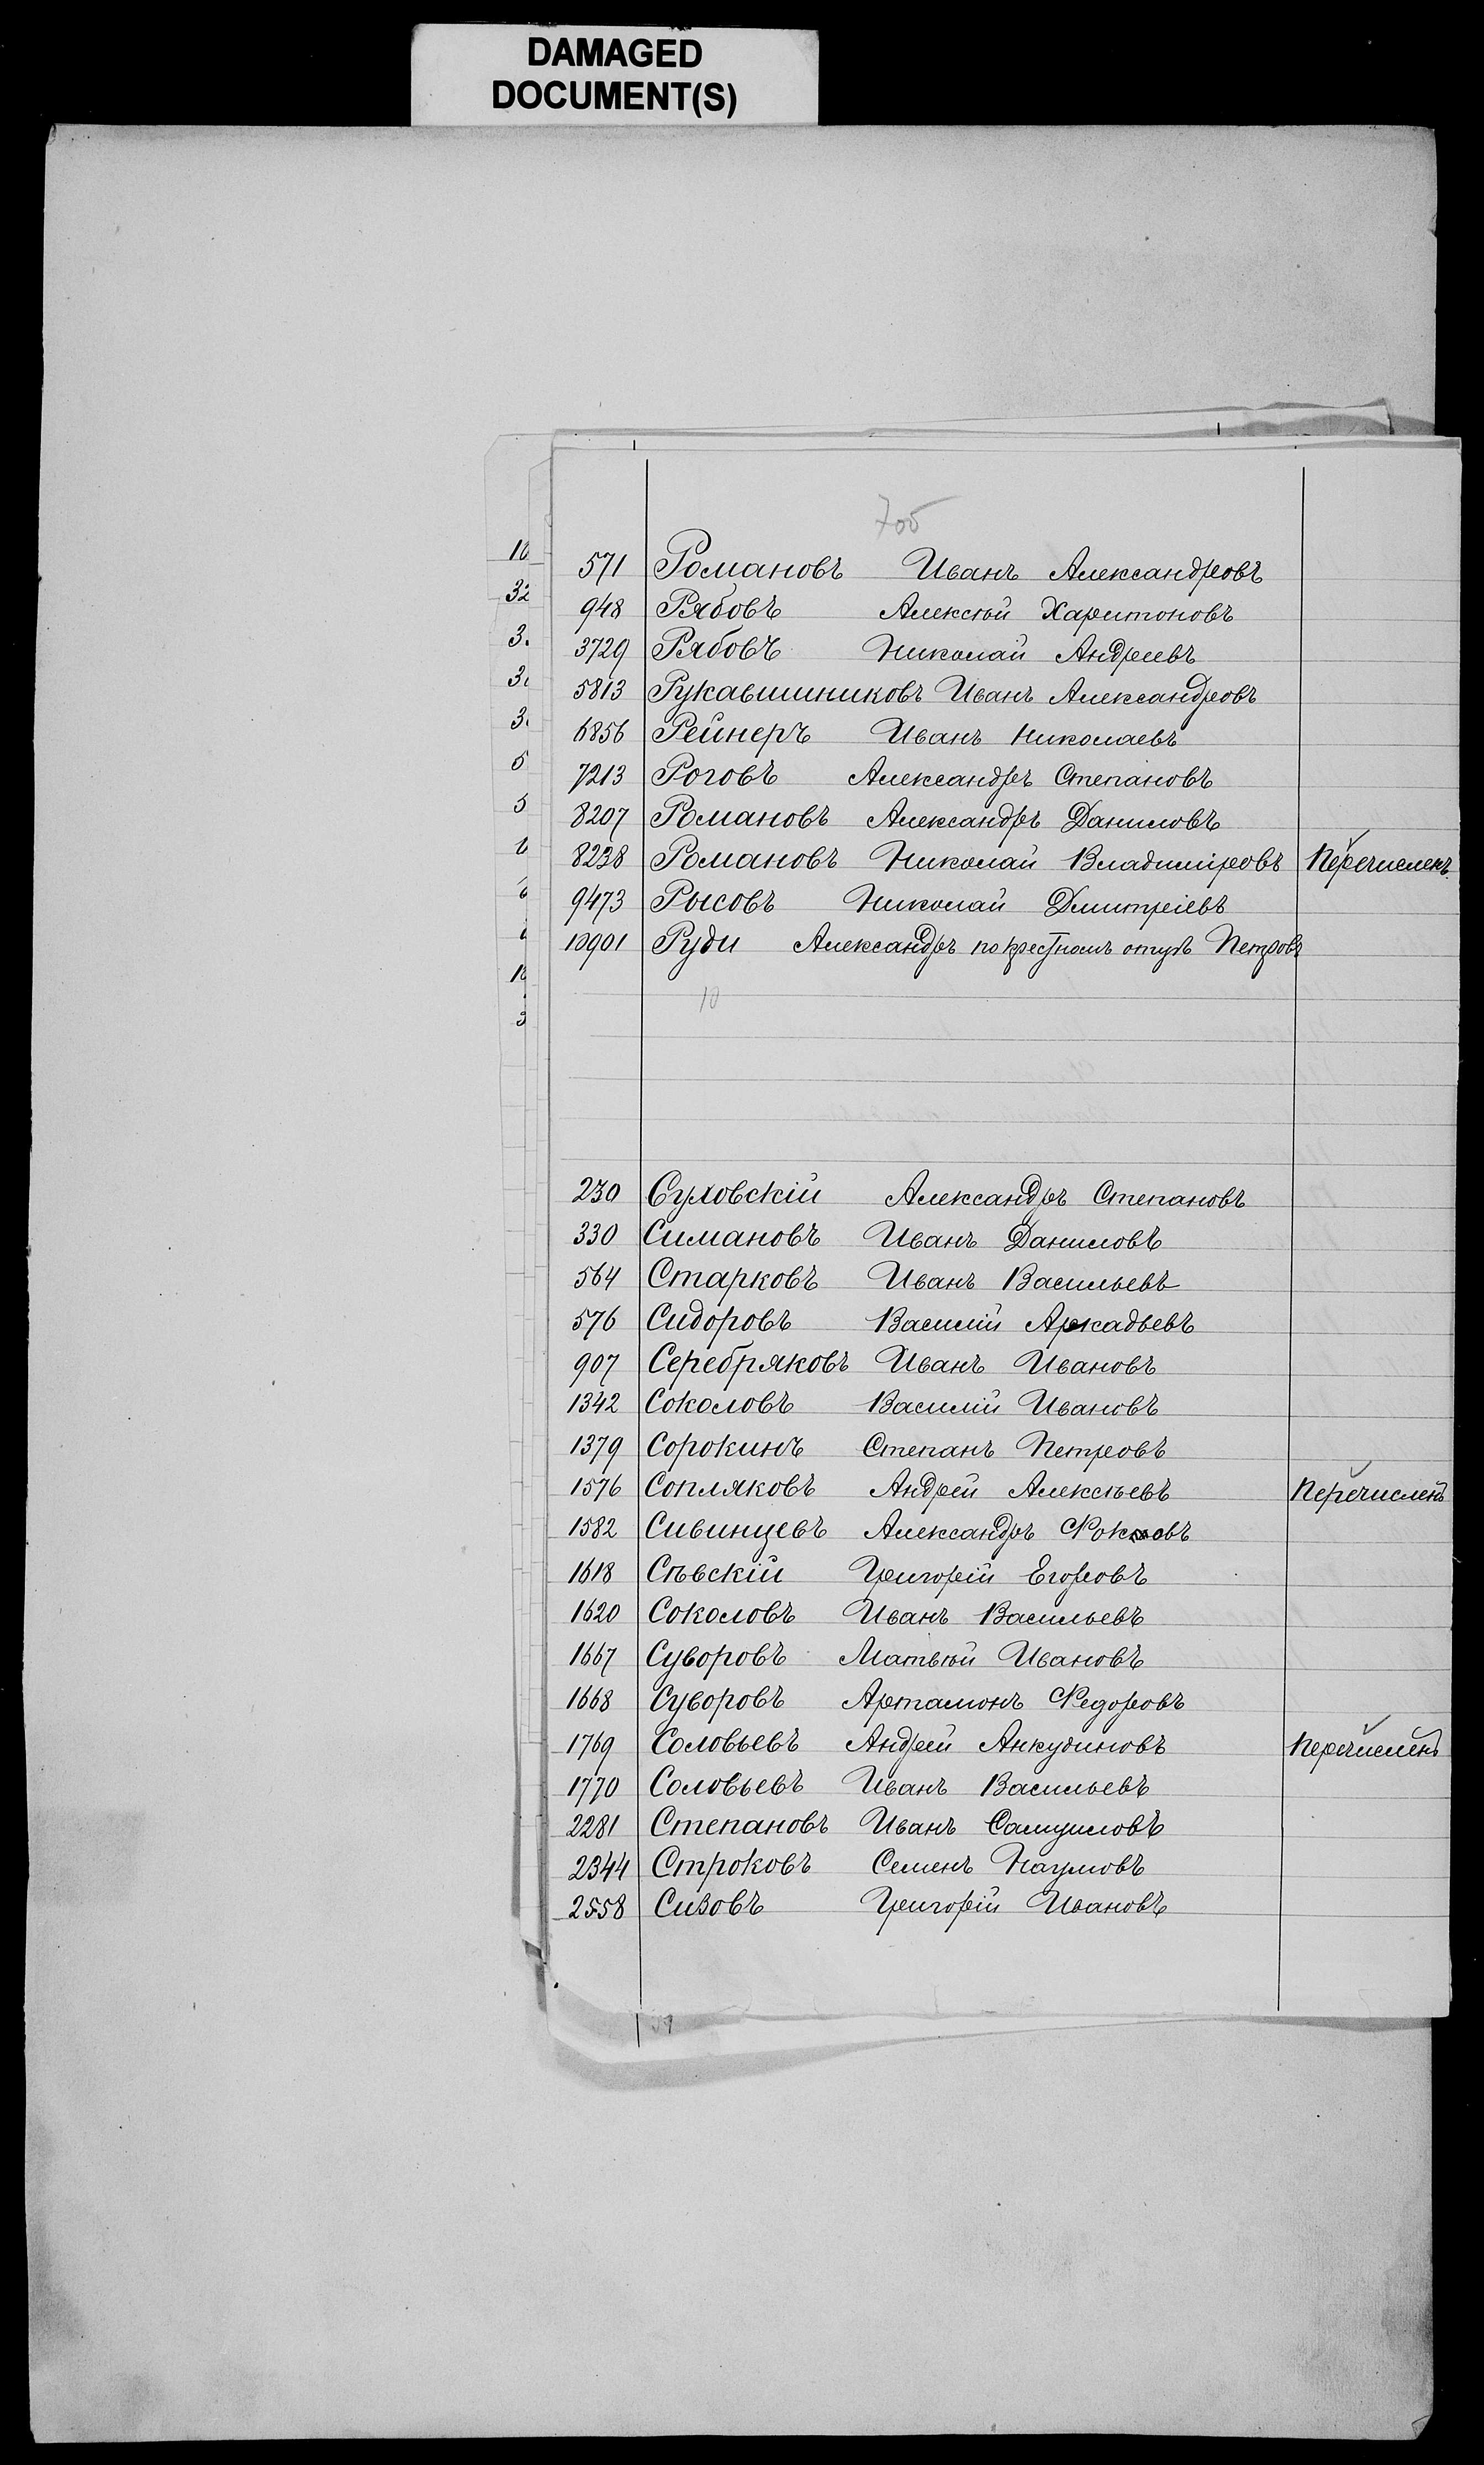 DAMAGED
DOCUMENT(S)
705
571 Романовъ Иванъ Александровъ
948 Рябовъ Алексѣй Харитоновъ
3729 Рябовъ Николай Андреевъ
5813 Рукавишниковъ Иванъ Александровъ
6856 Рейнеръ Иванъ Николаевъ
7213 Роговъ Александръ Степановъ
8207 Романовъ Александръ Даниловъ
8238 Романовъ Николай Владиміровъ Перечисленъ
9473 Рысовъ Николай Дмитріевъ
10901 Руди Александръ по крестномъ отцѣ Петровъ
10
230 Суховскій Александръ Степановъ
330 Симановъ Иванъ Даниловъ
564 Старковъ Иванъ Васильевъ
576 Сидоровъ Василій Аркадьевъ
907 Серебряковъ Иванъ Ивановъ
1342 Соколовъ Василій Ивановъ
1379 Сорокинъ Степанъ Петровъ
1576 Сопляковъ Андрей Алексѣевъ Перечисленъ
1582 Сивинцевъ Александръ
1618 Сѣвскій Григорій Егоровъ
1620 Соколовъ Иванъ Васильевъ
1667 Суворовъ Матвѣй Ивановъ
1668 Суворовъ Артамонъ Федоровъ
1769 Соловьевъ Андрей Анкудиновъ Перечисленъ
1770 Соловьевъ Иванъ Васильевъ
2281 Степановъ Иванъ Самуиловъ
2344 Строковъ Семенъ Наумовъ
2558 Сизовъ Григорій Ивановъ